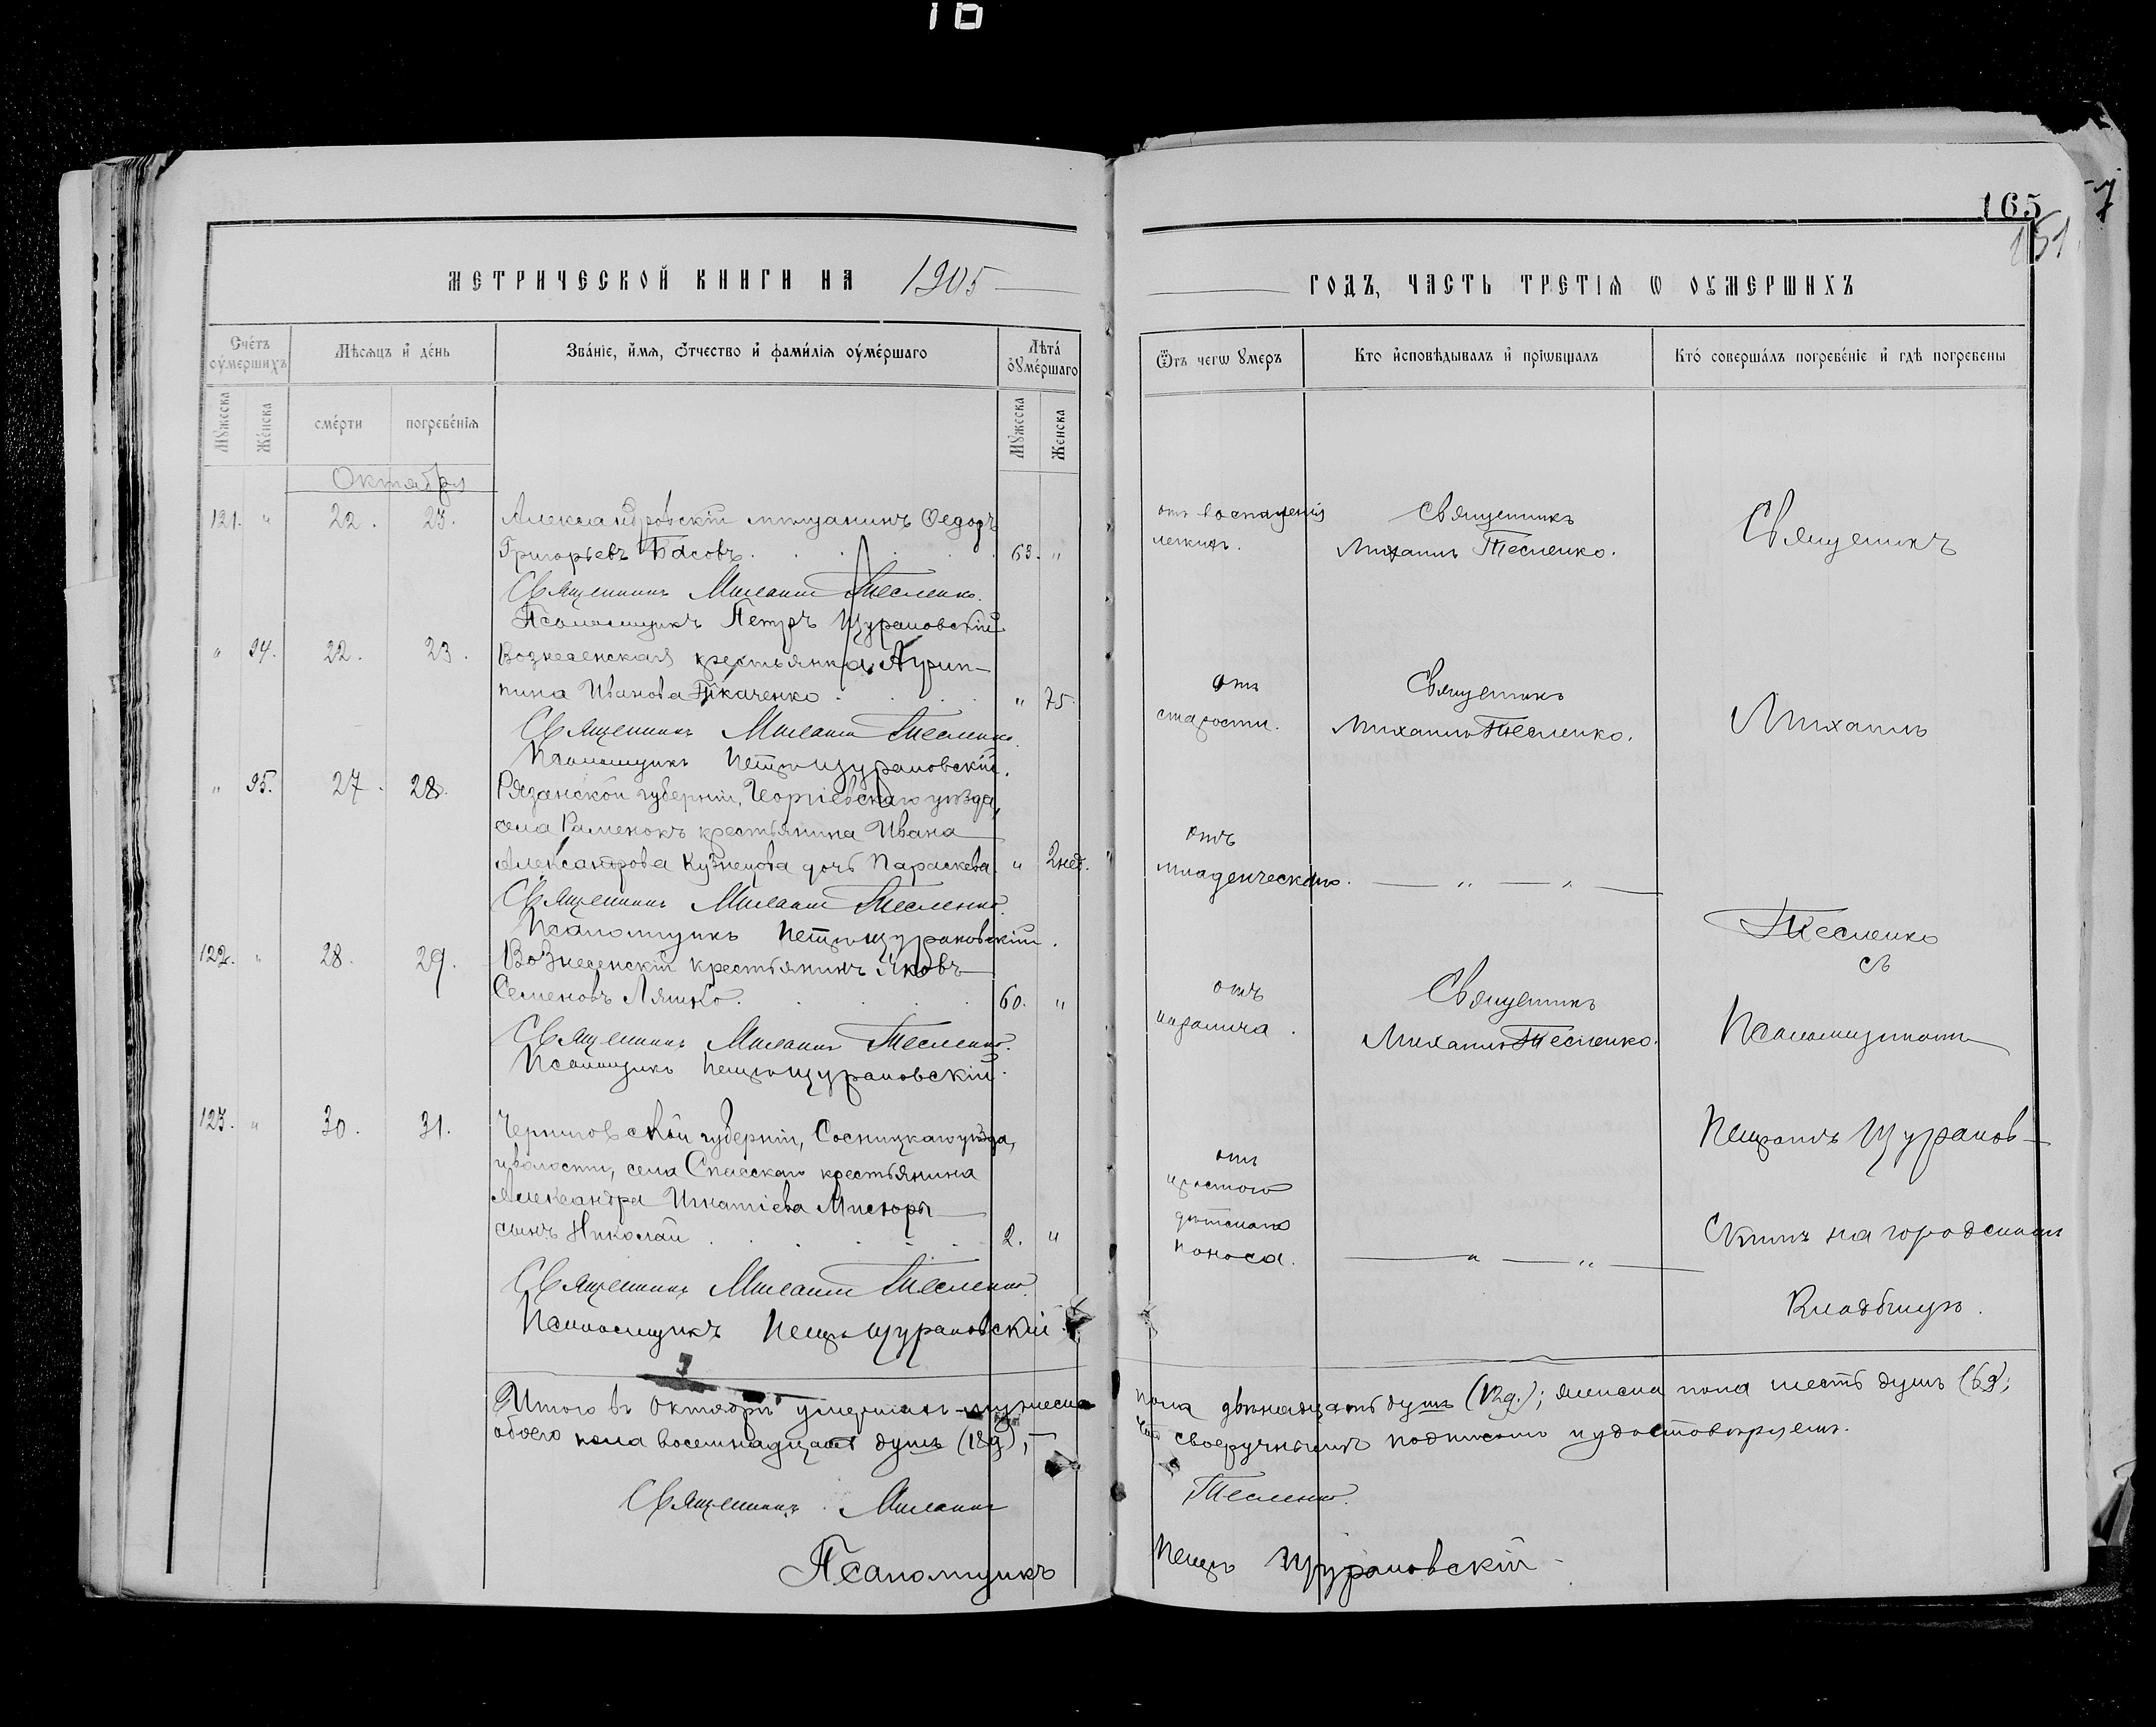 165
151
МЕТРИЧЕСКОЙ КНИГИ НА 1905
ГОДЪ, ЧАСТЬ ТРЕТІѦ Ѡ ОУМЕРШИХЪ
Счетъ оумершихъ
Мѣсяцъ и день
Званіе, имя, отчество и фамилія оумершаго
Лѣта оумершаго
Мужеска
Женска
смерти
погребенія
Мужеска
Женска
Отъ чегѡ умеръ
Кто исповѣдывалъ и пріѡбщалъ
Кто совершалъ погребеніе и гдѣ погребены
Октября
121. " 22. 23. Александровскій мѣщанинъ Ѳедоръ
Григорьевъ Басовъ. 63. "
Священникъ Михаилъ Тесленко.
Псаломщикъ Петръ Щурановскій
отъ воспаленія
легкихъ.
Священникъ
Михаилъ Тесленко.
" 94. 22. 23. Вознесенская крестьянка Агрип-
пина Иванова Ткаченко. " 75.
Священникъ Михаилъ Тесленко.
Псаломщикъ Петръ Щурановскій.
отъ
старости.
Священникъ
Михаилъ Тесленко.
" 95. 27. 28. Рязанской губерніи, Георгіевскаго уѣзда,
села Раменокъ крестьянина Ивана
Александрова Кузнецова дочь Параскева. " 2 нед.
Священникъ Михаилъ Тесленко.
Псаломщикъ Петръ Щурановскій.
отъ
младенческаго. — " — " —
122. " 28. 29. Вознесенскій крестьянинъ Яковъ
Семеновъ Ляшко. 60. "
Священникъ Михаилъ Тесленко.
Псаломщикъ Петръ Щурановскій.
отъ
паралича.
Священникъ
Михаилъ Тесленко.
123. " 30. 31. Черниговской губерніи, Сосницкаго уѣзда,
и волости, села Спасскаго крестьянина
Александра Игнатіева Мисюры
сынъ Николай 2. "
Священникъ Михаилъ Тесленко.
Псаломщикъ Петръ Щурановскій
отъ
простого
дѣтскаго
поноса. — " — " —
Священникъ
Михаилъ
Тесленко
съ
Псаломщикомъ
Петромъ Щуранов-
скимъ на городскомъ
кладбищѣ.
Итого въ Октябрѣ умершихъ мужеска
пола двѣнадцать душъ (12д.); женска пола шесть душъ (6д);
обоего пола восемнадцать душъ (18д),
что своеручнымъ подписомъ и удостовѣряемъ.
Священникъ Михаилъ
Тесленко.
Псаломщикъ
Петръ Щурановскій